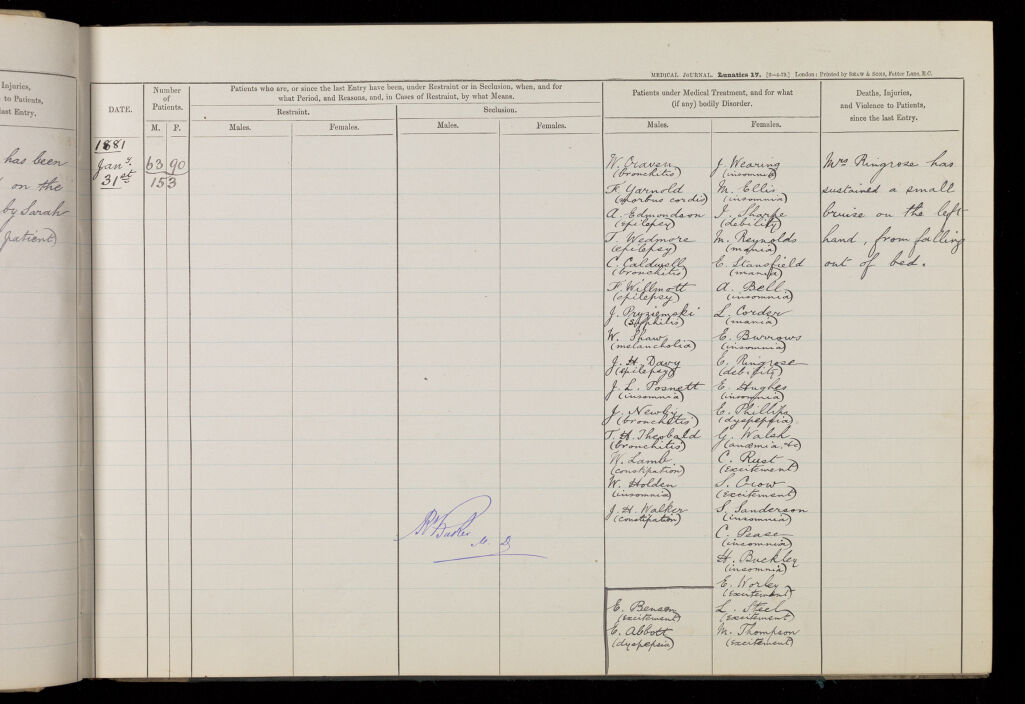 MEDICAL JOURNAL. Lunatics 17. [2—4-79.] London: Printed by SHAW & SONS, Fetter Lane, E.C.
Injuries,
to Patients,
last Entry.
has been
on the
by Sarah
patient)
DATE.
Number
of
Patients.
M. F.
Patients who are, or since the last Entry have been, under Restraint or in Seclusion, when, and for
what Period, and Reasons, and, in Cases of Restraint, by what Means.
Restraint.
Seclusion.
Males.
Females.
Males.
Females.
Patients under Medical Treatment, and for what
(if any) bodily Disorder.
Males.
Females.
Deaths, Injuries,
and Violence to Patients,
since the last Entry.
1881
Jany.
31st
63 90
153
W. Craven
(bronchitis)
F. Yarnold
(morbus cordis)
A. Edmondson
(epilepsy)
T. Wedmore
(epilepsy)
C. Caldwell
(bronchitis)
F. Willmott
(epilepsy)
J. Pryziemski
(Syphilis)
W. Shaw
(melancholia)
J. H. Davy
(epilepsy)
J. L. Posnett
(insomnia)
J. Newby
(bronchitis)
T. H. Theobald
(bronchitis)
W. Lamb
(constipation)
W. Holden
(insomnia)
J. H. Walker
(constipation)
E. Benson
(excitement)
E. Abbott
(dyspepsia)
J. Wearing
(insomnia)
M. Ellis
(insomnia)
J. Sharpe
(debility)
M. Reynolds
(mania)
E. Stansfield
(mania)
A. Bell
(insomnia)
L. Corder
(mania)
E. Burrows
(insomnia)
E. Ringrose
(debility)
E. Hughes
(insomnia)
E. Phillips
(dyspepsia)
G. Walsh
(anæmia, &c)
C. Rust
(Excitement)
S. Crow
(Excitement)
S. Sanderson
(insomnia)
C. Pease
(insomnia)
H. Buckley
(insomnia)
E. Worley
(Excitement)
L. Steel
(excitement)
M. Thompson
(Excitement)
Mrs Ringrose has
sustained a small
bruise on the left
hand, from falling
out of bed.
Baker
M. D